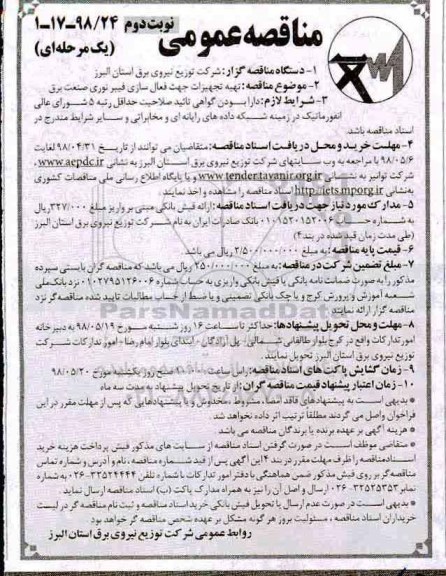 نوبت دوم ۹۸/۲۴-۱۷-۱
مناقصه عمومی
(یک مرحله‌ای)
۱- دستگاه مناقصه گزار: شرکت توزیع نیروی برق استان البرز
۲- موضوع مناقصه: تهیه تجهیزات جهت فعال سازی فیبر نوری صنعت برق
۳- شرایط لازم: دارا بودن گواهی تائید صلاحیت حداقل رتبه ۵ شورای عالی
انفورماتیک در زمینه شبکه داده های رایانه ای و مخابراتی و سایر شرایط مندرج در
اسناد مناقصه باشد.
۴- مهلت خرید و محل دریافت اسناد مناقصه: متقاضیان می توانند از تاریخ ۹۸/۰۴/۳۱ لغایت
۹۸/۰۵/۶ با مراجعه به وب سایتهای شرکت توزیع نیروی برق استان البرز به نشانی www.aepdc.ir،
شرکت توانیر به نشانی www.tender.tavanir.org.ir و یا پایگاه اطلاع رسانی ملی مناقصات کشوری
به نشانی http://iets.mporg.ir اسناد مناقصه را مشاهده و اخذ نمایند.
۵- مدارک مورد نیاز جهت دریافت اسناد مناقصه: ارائه فیش بانکی مبنی بر واریز مبلغ ۳۲۷/۰۰۰ ریال
به شماره حساب ۰۱۰۱۵۲۰۱۵۲۰۰۶ بانک صادرات ایران به نام شرکت توزیع نیروی برق استان البرز
(طی مدت زمان قید شده در بند ۴)
۶- قیمت پایه مناقصه: به مبلغ ۲/۵۰۰/۰۰۰/۰۰۰ ریال می باشد.
۷- مبلغ تضمین شرکت در مناقصه: به مبلغ ۲۵۰/۰۰۰/۰۰۰ ریال می باشد که مناقصه گران بایستی سپرده
مذکور را به صورت ضمانت نامه بانکی یا فیش بانکی واریزی به حساب شماره ۰۱۰۲۷۹۵۱۲۶۰۰۶ نزد بانک ملی
شعبه آموزش و پرورش کرج و یا چک بانکی تضمینی و یا ضبط از حساب مطالبات تایید شده مناقصه گر نزد
مناقصه گزار ارائه نمایند.
۸- مهلت و محل تحویل پیشنهادها: حداکثر تا ساعت ۱۶ روز شنبه مورخ ۹۸/۰۵/۱۹ به دبیرخانه
امور تدارکات واقع در کرج بلوار طالقانی شمالی- پل آزادگان - ابتدای بلوار امام رضا - امور تدارکات شرکت
توزیع نیروی برق استان البرز تحویل نمایند.
۹- زمان گشایش پاکت های اسناد مناقصه: راس ساعت ۱۰:۰۰ صبح روز یکشنبه مورخ ۹۸/۰۵/۲۰
۱۰- زمان اعتبار پیشنهاد قیمت مناقصه گران: از تاریخ تحویل پیشنهاد به مدت سه ماه
* بدیهی است به پیشنهادهای فاقد امضاء، مشروط، مخدوش و یا پیشنهادهایی که پس از مهلت مقرر در این
فراخوان واصل می گردند مطلقاً ترتیب اثر داده نخواهد شد.
* هزینه آگهی بر عهده برنده یا برندگان مناقصه می باشد.
* متقاضی موظف است در صورت گرفتن اسناد مناقصه از سایت های مذکور فیش پرداخت هزینه خرید
اسناد مناقصه را ظرف مهلت مقرر در بند ۴ این آگهی پس از قید شماره مناقصه، نام و آدرس و شماره تماس
مناقصه گر بر روی فیش مذکور ضمن هماهنگی با دفتر امور تدارکات با شماره تلفن ۳۲۵۲۴۴۴۴-۰۲۶ به شماره
نمابر ۳۲۵۲۵۳۵۳-۰۲۶ ارسال و اصل آن را نیز به همراه مدارک پاکت (ب) اسناد مناقصه ارسال نماید.
* بدیهی است در صورت عدم ارسال یا تحویل فیش بانکی خرید اسناد مناقصه و ثبت نام مناقصه گر در لیست
خریداران اسناد مناقصه، مسئولیت بروز هر گونه مشکل بر عهده شخص مناقصه گر خواهد بود.
روابط عمومی شرکت توزیع نیروی برق استان البرز
ParsNamadData